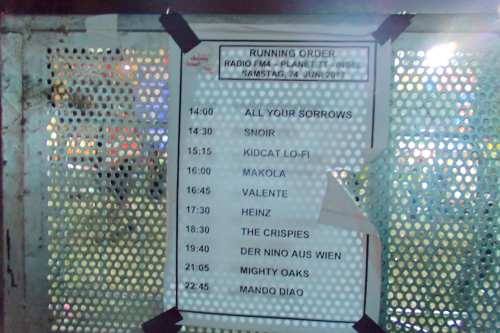 RUNNING ORDER
RADIO FM4 - PLANET.TT - INSEL
SAMSTAG, 24. JUNI 2017
14:00 ALL YOUR SORROWS
14:30 SNOIR
15:15 KIDCAT LO-FI
16:00 MAKOLA
16:45 VALENTE
17:30 HEINZ
18:30 THE CRISPIES
19:40 DER NINO AUS WIEN
21:05 MIGHTY OAKS
22:45 MANDO DIAO